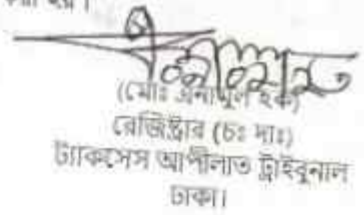 করা হয়।
(মোঃ এনামুল হক)
রেজিস্ট্রার (চঃ দাঃ)
ট্যাকসেস আপীলাত ট্রাইবুনাল
ঢাকা।